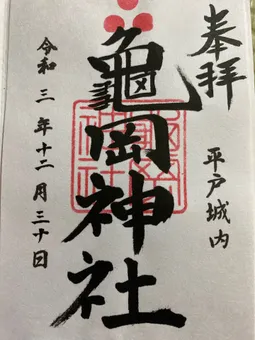 奉拝
平戸城内
亀岡神社
令和三年十二月三十日